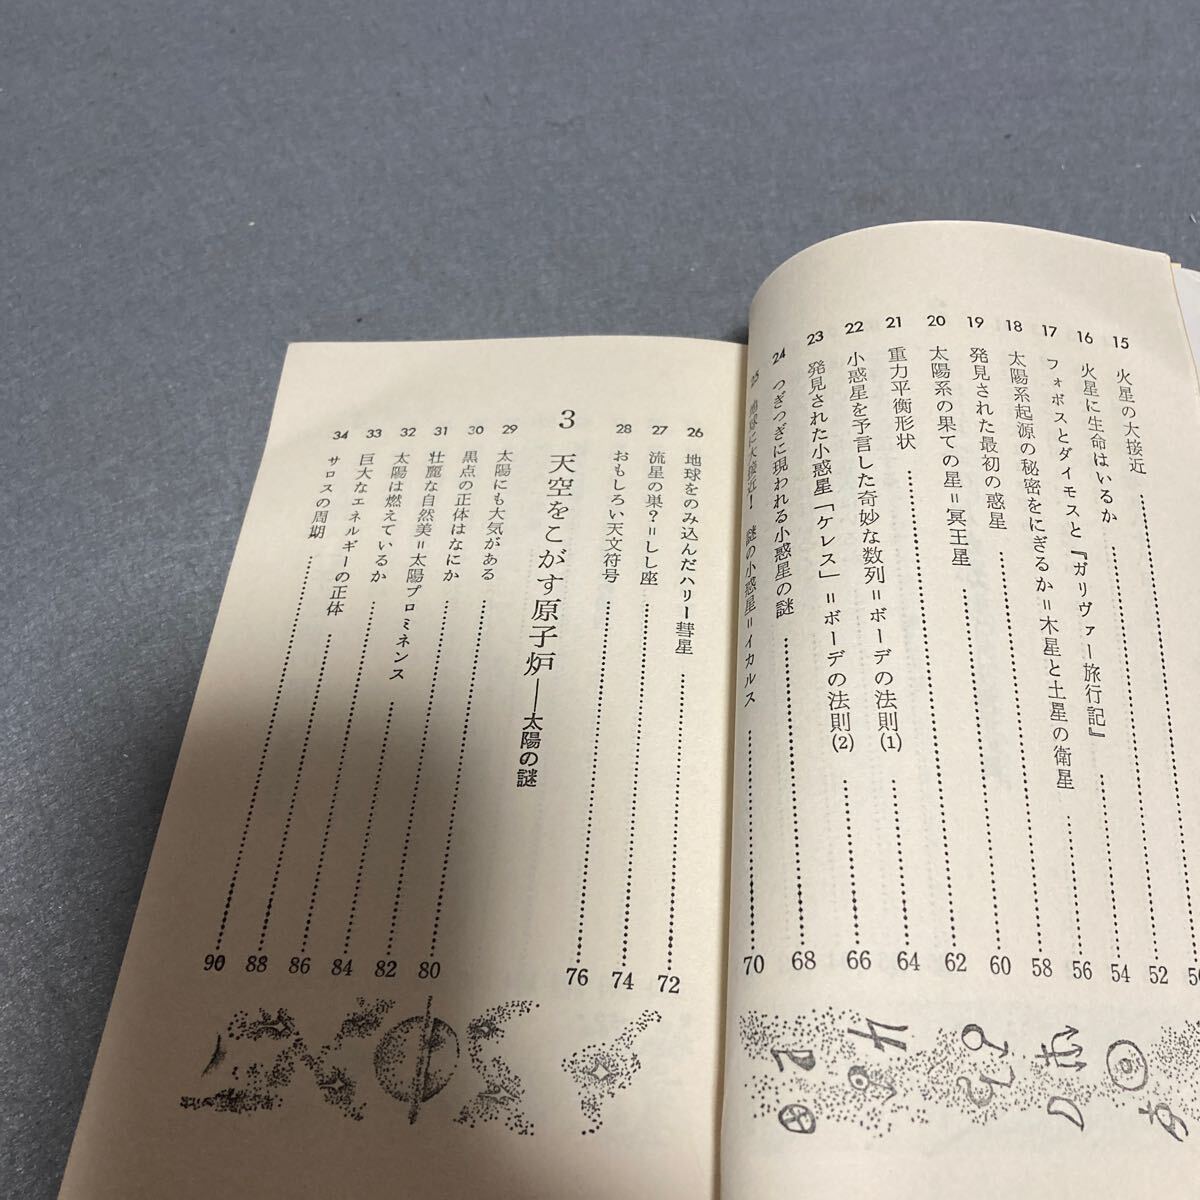 15 火星の大接近 50
16 火星に生命はいるか 52
17 フォボスとダイモスと『ガリヴァー旅行記』 54
18 太陽系起源の秘密をにぎるか＝木星と土星の衛星 56
19 発見された最初の惑星 58
20 太陽系の果ての星＝冥王星 60
21 重力平衡形状 62
22 小惑星を予言した奇妙な数列＝ボーデの法則(1) 64
23 発見された小惑星「ケレス」＝ボーデの法則(2) 66
24 つぎつぎに現われる小惑星の謎 68
25 地球に大接近！ 謎の小惑星＝イカルス 70
26 地球をのみ込んだハリー彗星 72
27 流星の巣？＝しし座 74
28 おもしろい天文符号 76
3 天空をこがす原子炉――太陽の謎
29 太陽にも大気がある 80
30 黒点の正体はなにか 82
31 壮麗な自然美＝太陽プロミネンス 84
32 太陽は燃えているか 86
33 巨大なエネルギーの正体 88
34 サロスの周期 90